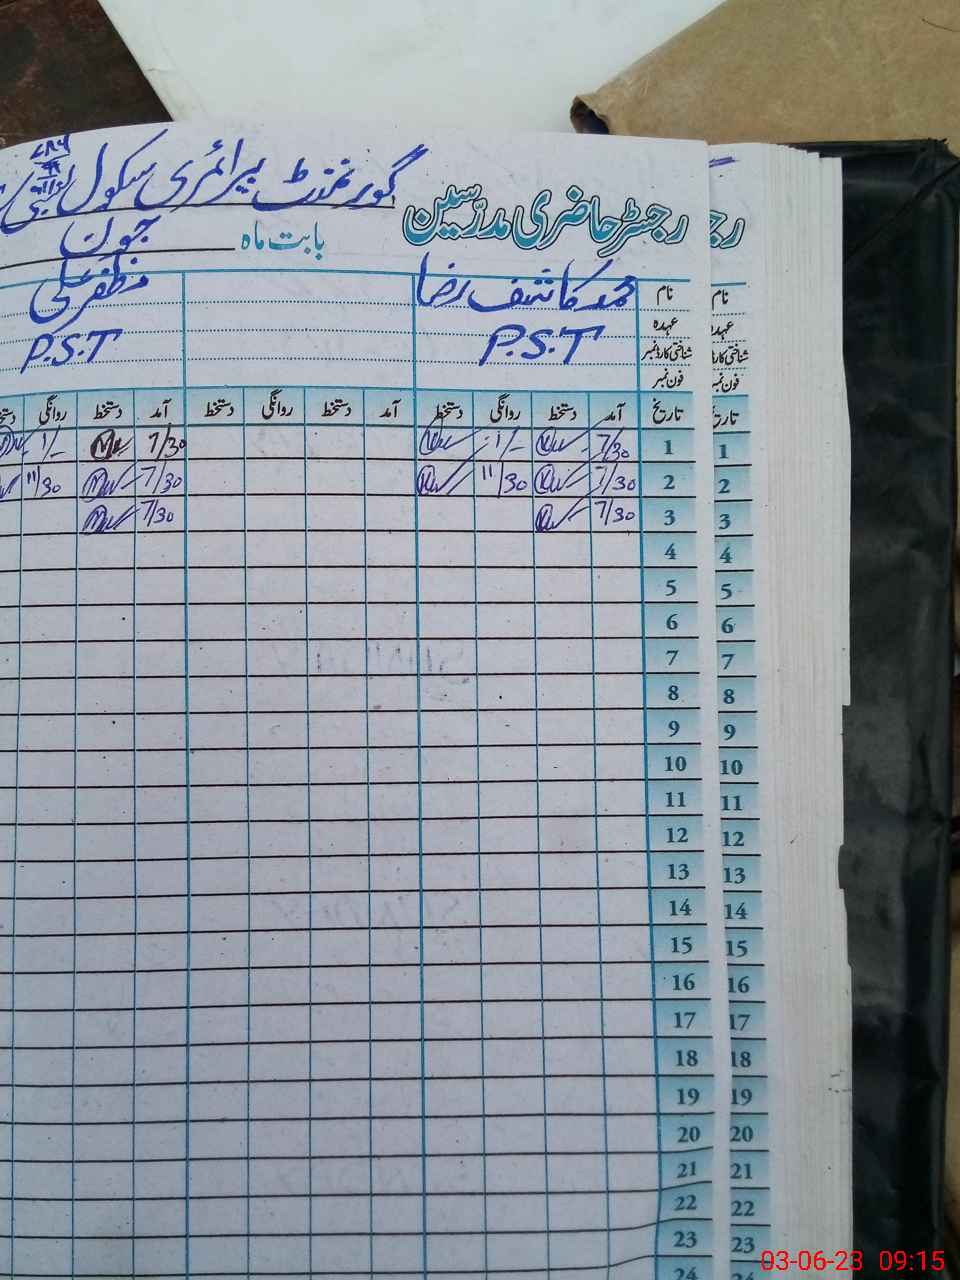 رجسٹر حاضری مدرسین گورنمنٹ پرائمری سکول
بابت ماہ جون
نام محمد کاشف رضا مظفر علی
عہدہ P.S.T P.S.T
شناختی کارڈ نمبر
فون نمبر
تاریخ آمد دستخط روانگی دستخط آمد دستخط روانگی دستخط آمد دستخط روانگی
1 7/30 1/- 7/30 1/-
2 7/30 11/30 7/30 11/30
3 7/30 7/30
4
5
6
7
8
9
10
11
12
13
14
15
16
17
18
19
20
21
22
23
24
نام
عہدہ
شناختی کارڈ نمبر
فون نمبر
1
2
3
4
5
6
7
8
9
10
11
12
13
14
15
16
17
18
19
20
21
22
23
03-06-23 09:15